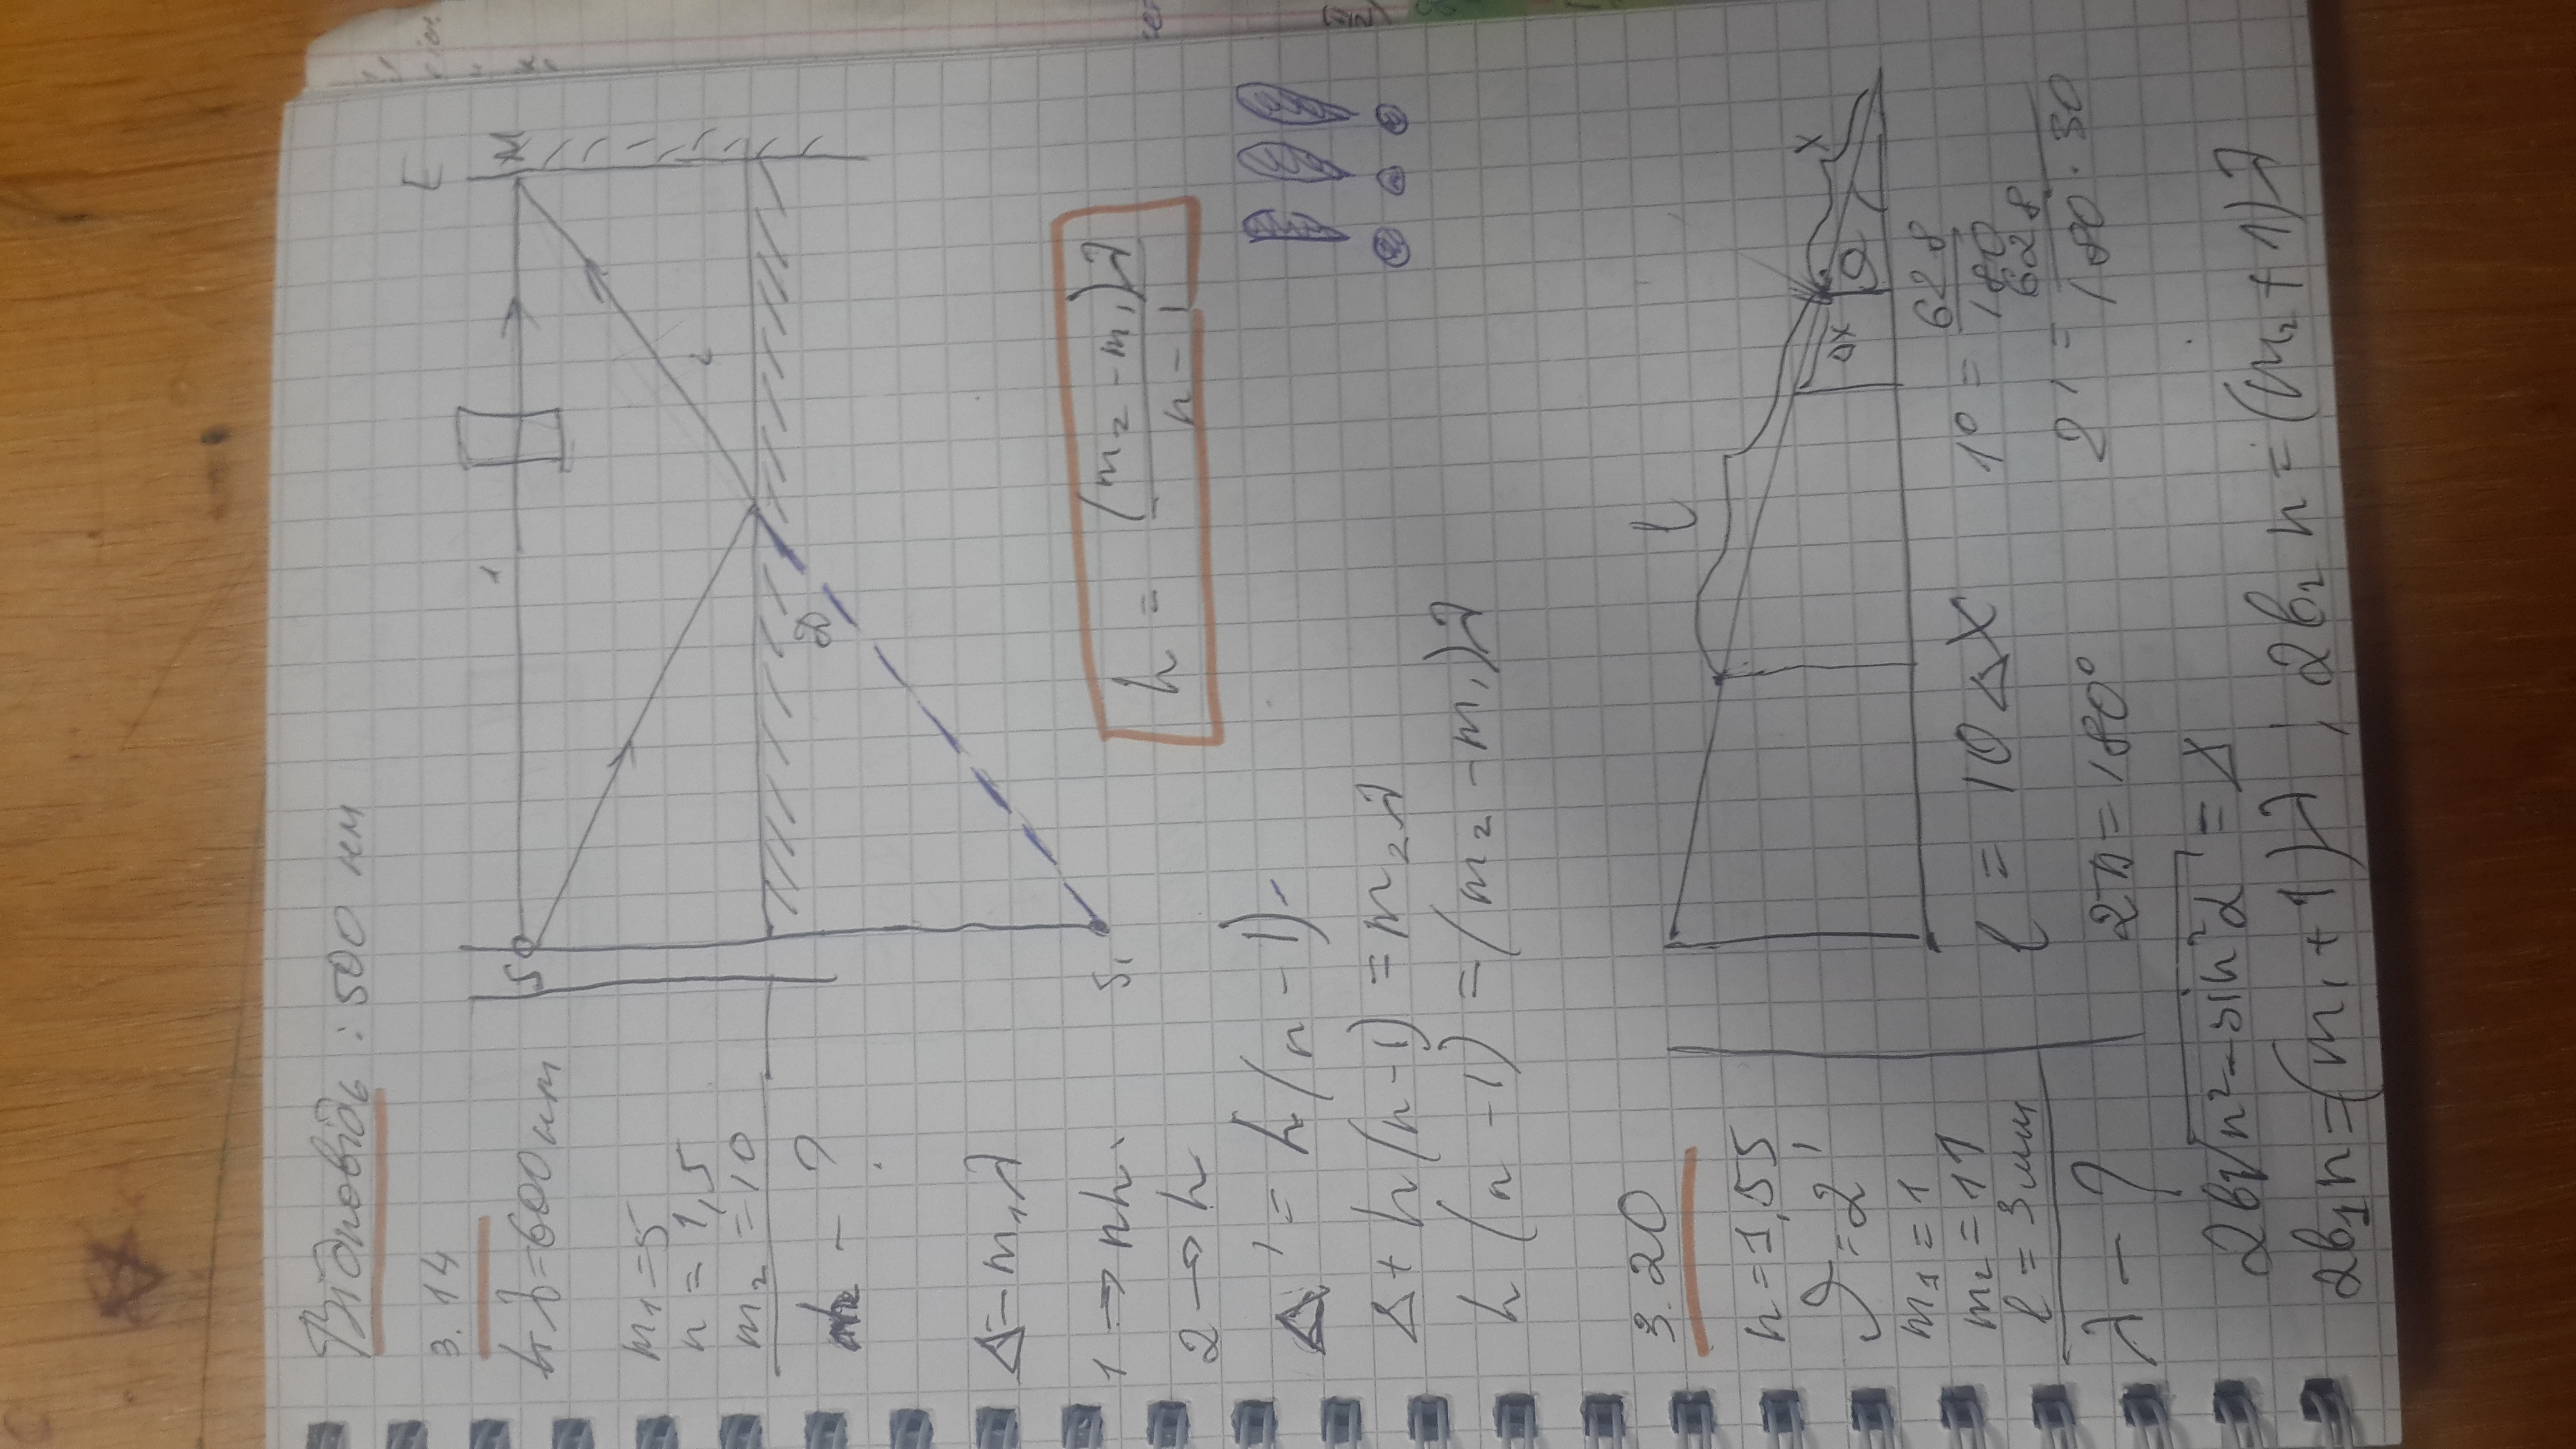 Відповідь : 500 нм
3.14
λ=600 нм
m₁=5
n = 1,5
m₂ =10
h – ?
S
1
E
M
2
D
S₁
Δ=m₁λ
1 → nh
2 → h
h = (m₂ - m₁)λ / n - 1
Δ' = h(n - 1)
Δ+ h(n-1) = m₂λ
h (n -1) = (m₂ -m₁)λ
!!!
3.20
n=1,55
ϑ=2'
m₁ =1
m₂ =11
l = 3мм
λ – ?
l
Δx
x
l = 10 Δx
1° = 628 / 180
2π=180°
2' = 628 / 180·30
2b√n²-sin²α = Δ
2b₁n=(m₁+1)λ ; 2b₂ n =(m₂+1)λ